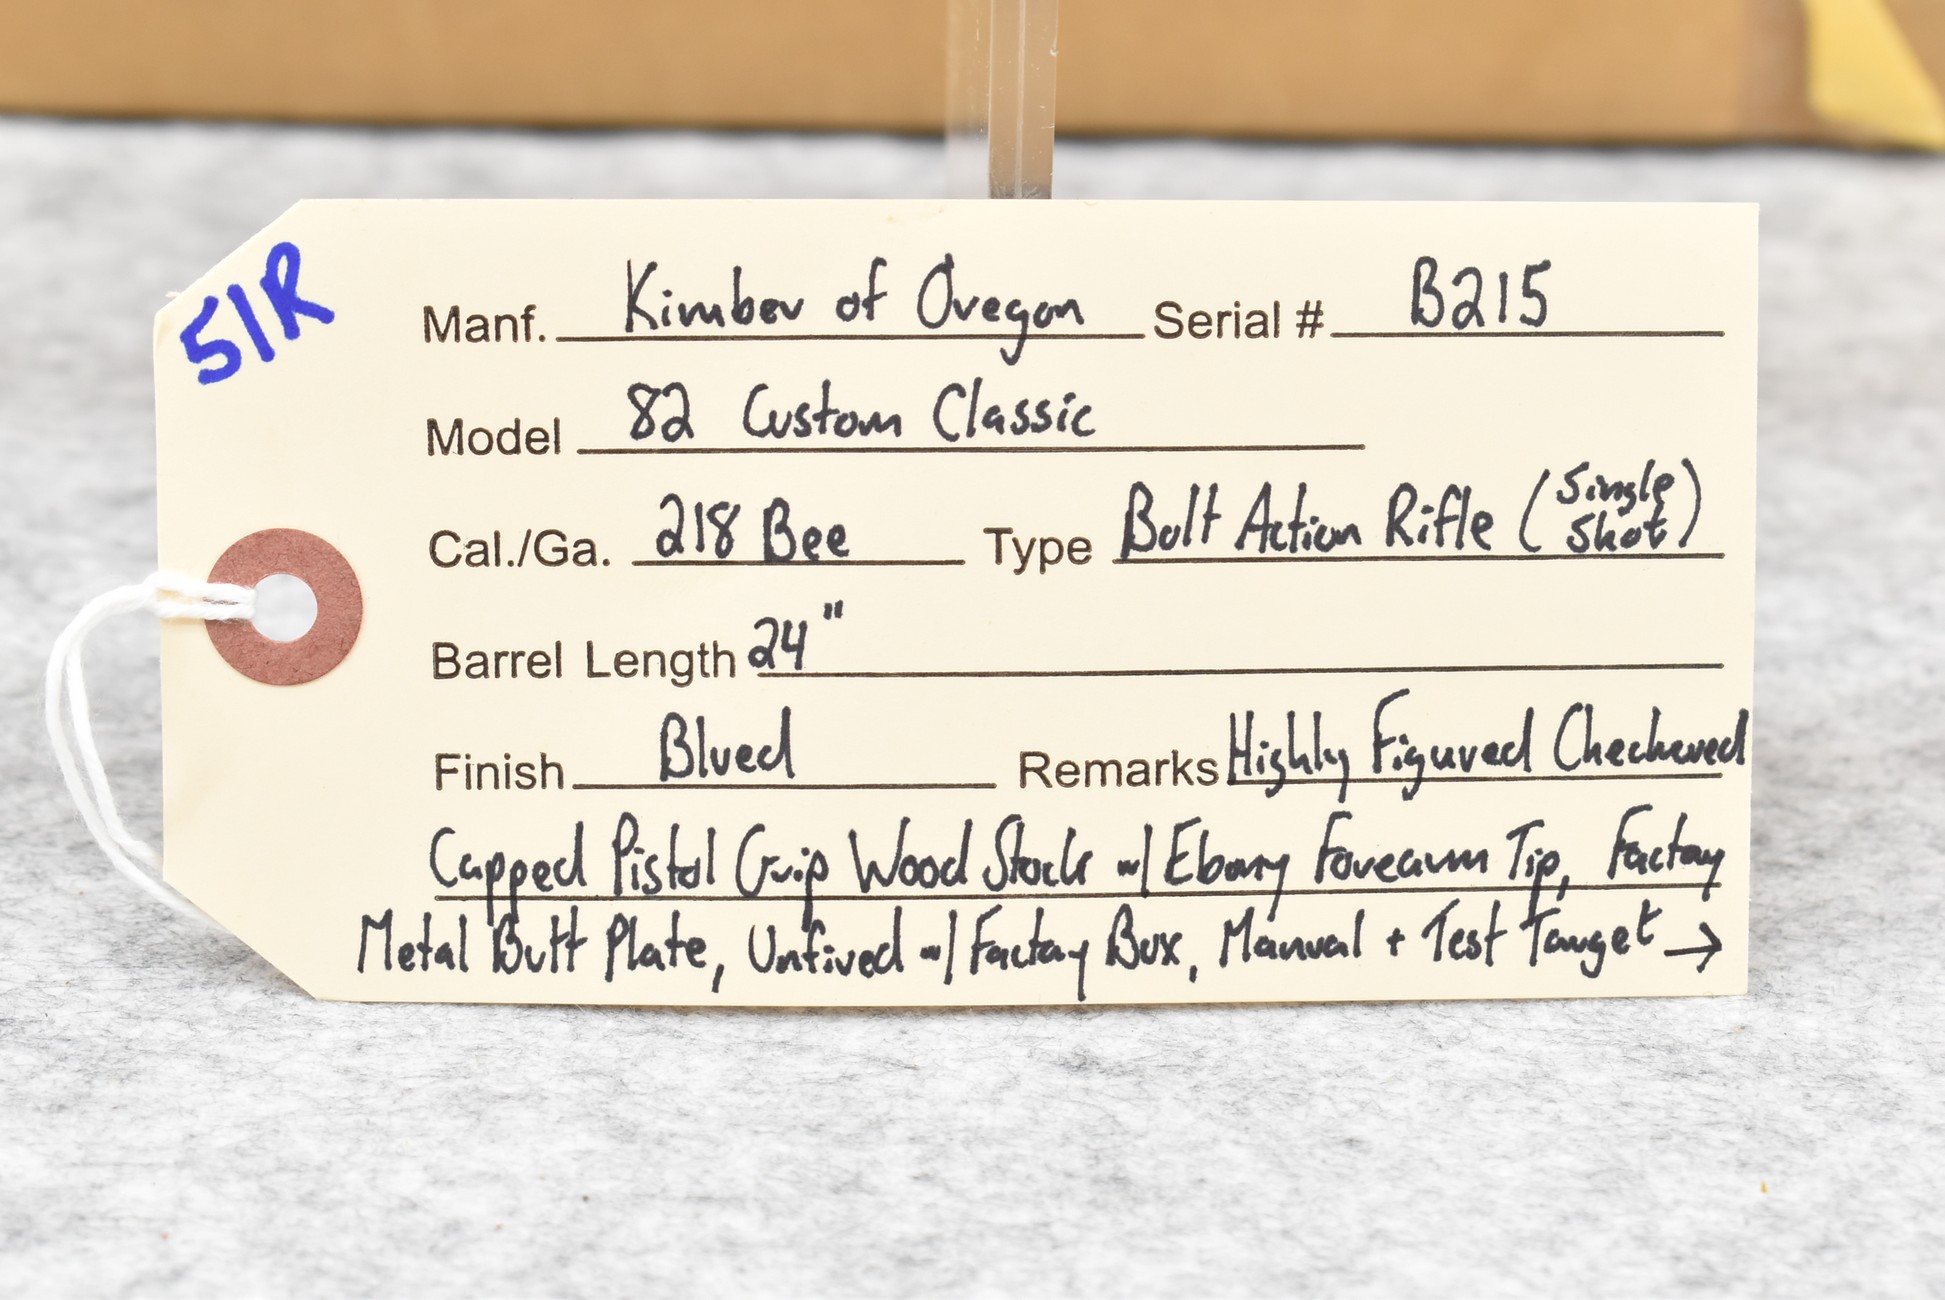 51R
Manf. Kimber of Oregon Serial # B215
Model 82 Custom Classic
Cal./Ga. 218 Bee Type Bolt Action Rifle (Single Shot)
Barrel Length 24"
Finish Blued Remarks Highly Figured Checkered
Capped Pistol Grip Wood Stock w/ Ebony Forearm Tip, Factory
Metal Butt Plate, Unfired w/ Factory Box, Manual + Test Target →